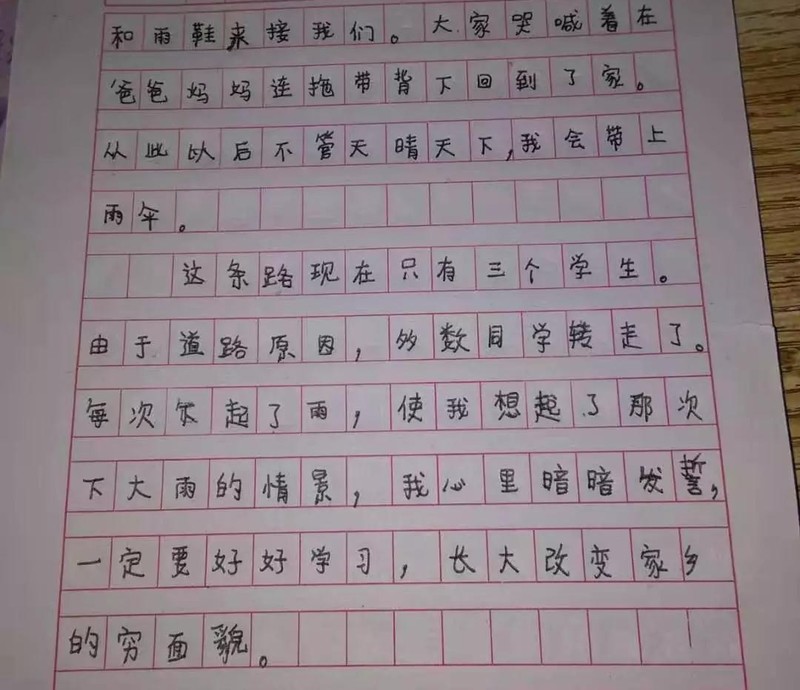 和雨鞋来接我们。大家哭喊着在
爸爸妈妈连拖带背下回到了家。
从此以后不管天晴天下,我会带上
雨伞。
这条路现在只有三个学生。
由于道路原因,多数同学转走了。
每次下起了雨,使我想起了那次
下大雨的情景,我心里暗暗发誓,
一定要好好学习,长大改变家乡
的穷面貌。